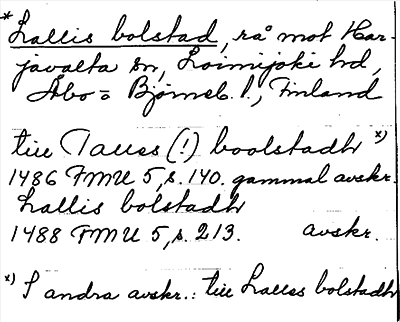 * Lallis bolstad, rå mot Har-
javalta sn, Loimijoki hd,
Åbo = Björneb. l., Finland
till Talles (!) boolstadh x)
1486 FMU 5, s. 140. gammal avskr.
Lallis bolstadh
1488 FMU 5, s. 213. avskr.
x) I andra avskr.: till Lalles bolstadh